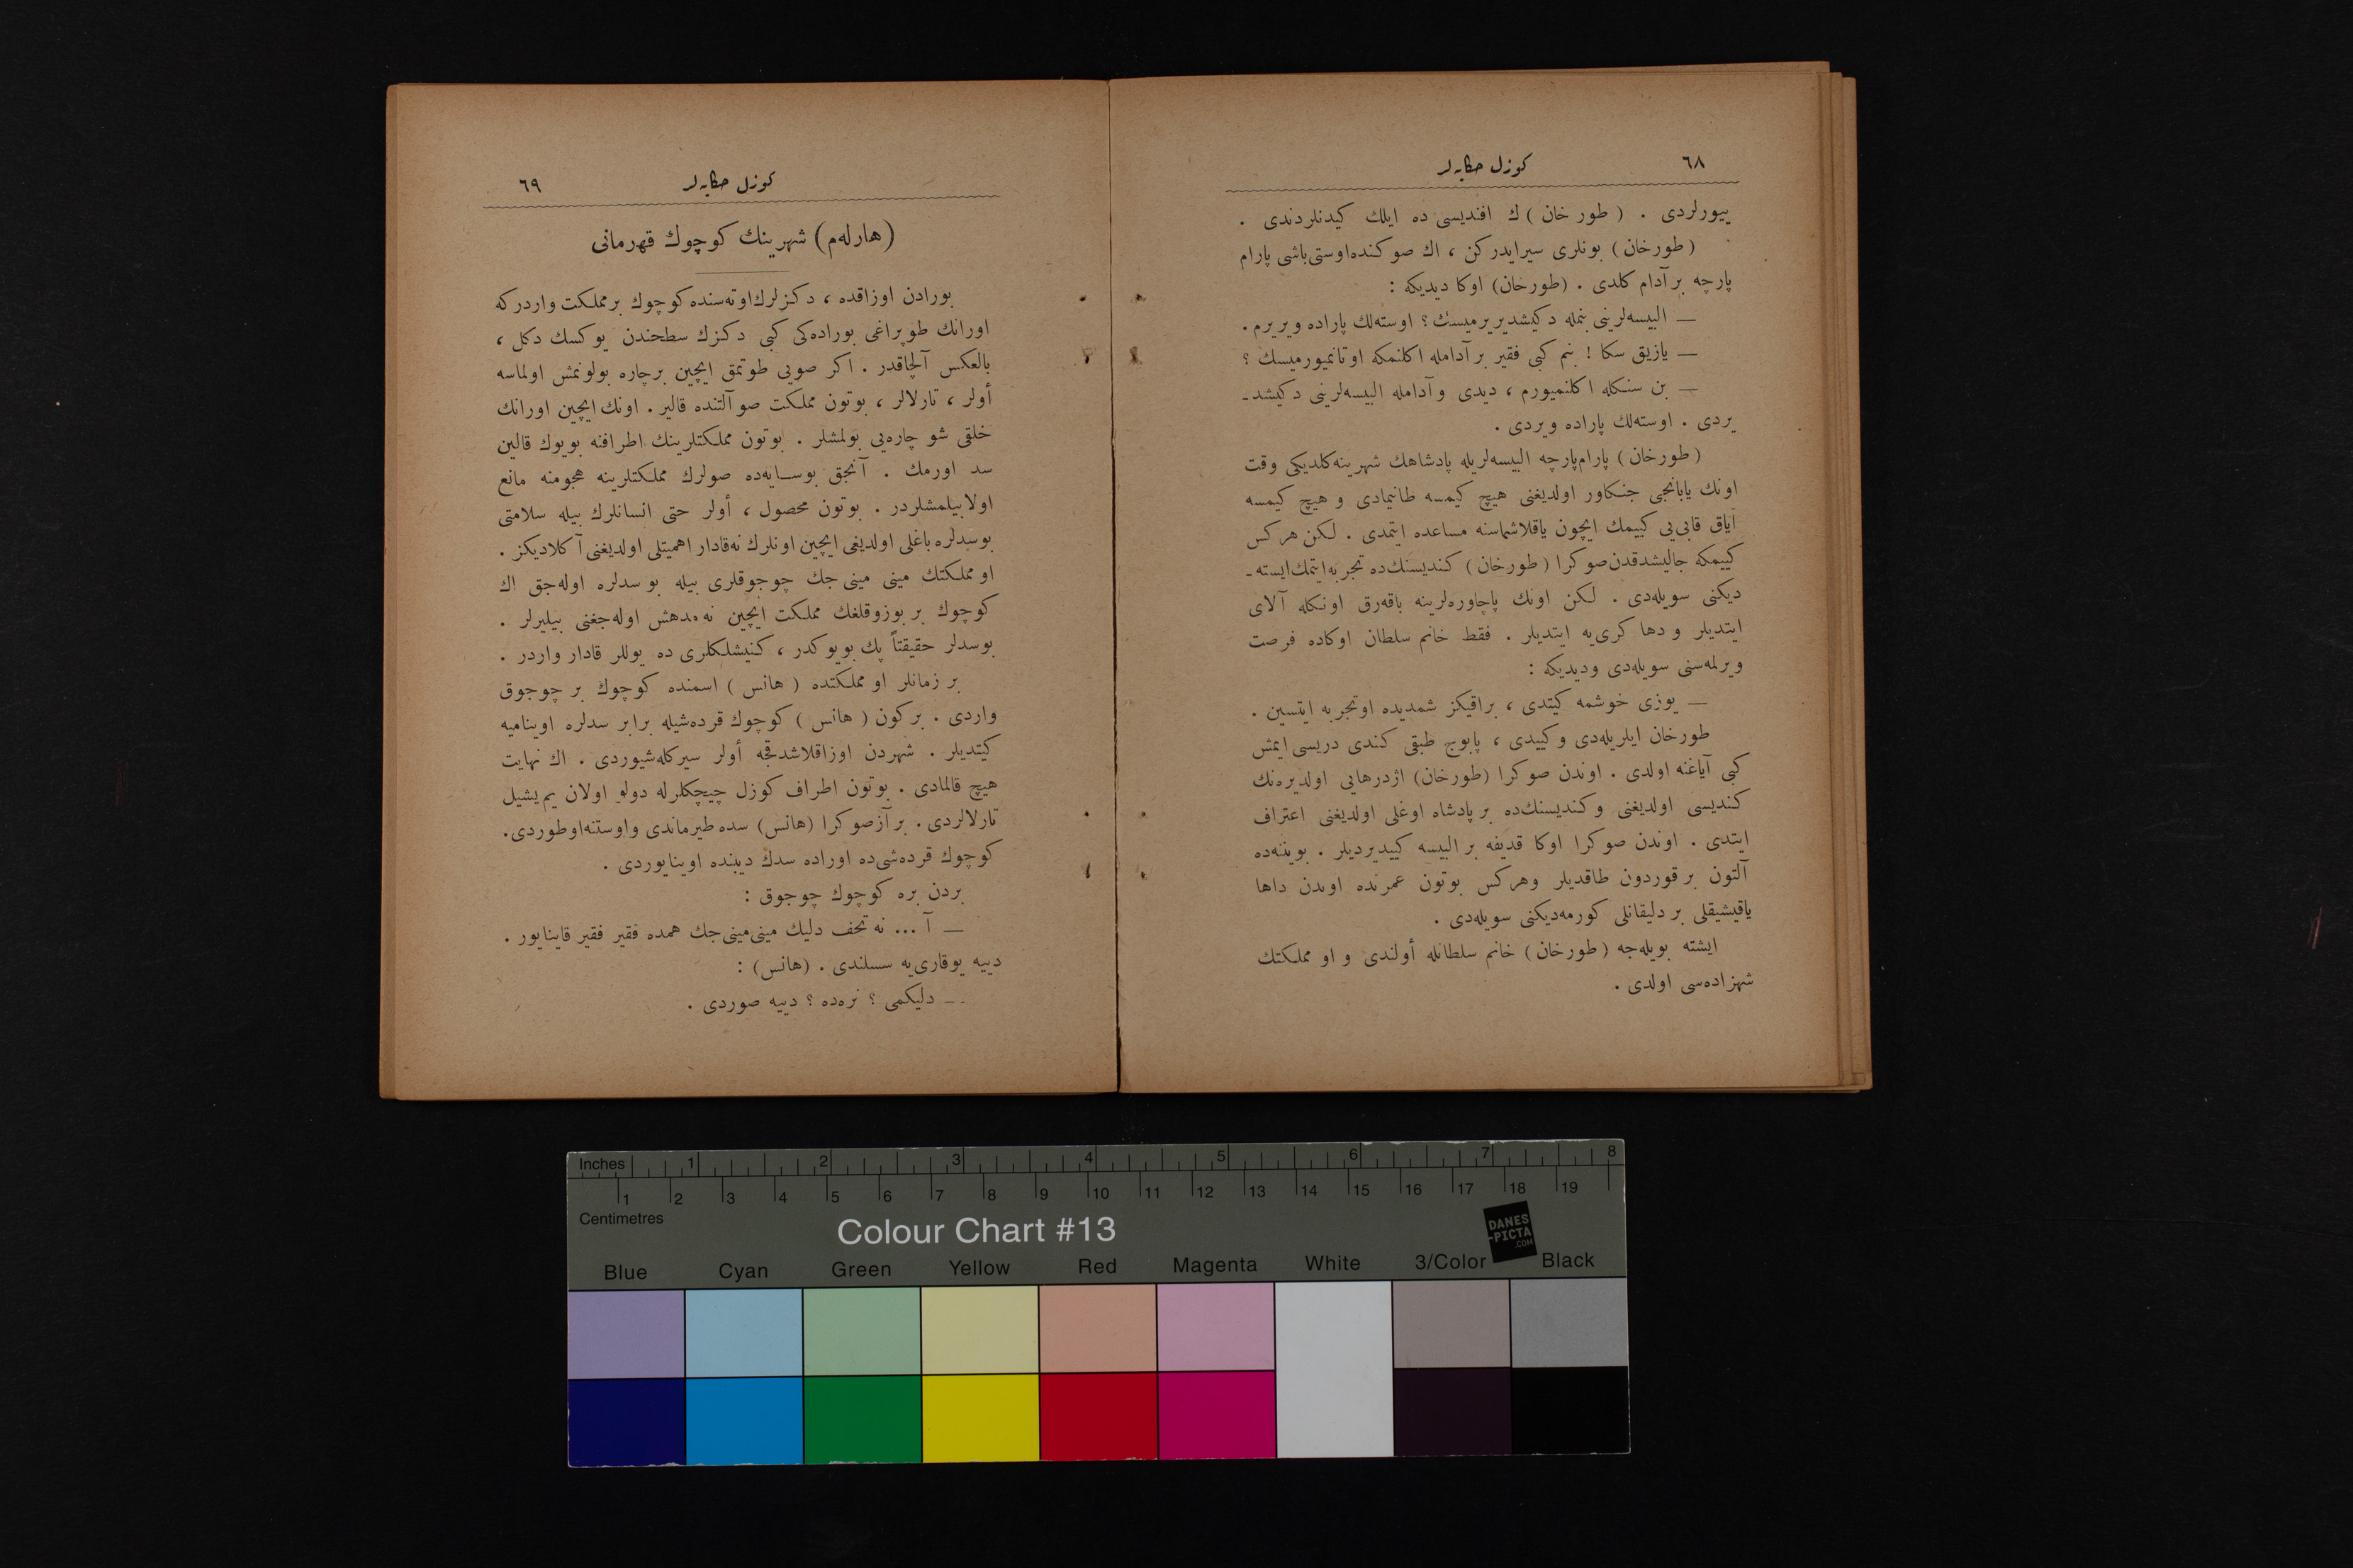 ٦٨
كوزل حكايه‌لر
ييورلردى . (طورخان) ك افنديسى ده ايلك كيدنلردندى .
(طورخان) بونلرى سيرايدركن ، اك صوكنده‌اوستى‌باشى پارام
پارچه بر آدام كلدى . (طورخان) اوكا ديديكه :
— البيسه‌لرينى بنمله دكيشديريرميسك ؟ اوسته‌لك پاراده ويريرم .
— يازيق سكا ! بنم كبى فقير بر آدامله اكلنمكه اوتانميورميسك ؟
— بن سنكله اكلنميورم ، ديدى و آدامله البيسه‌لرينى دكيشد-
يردى . اوسته‌لك پاراده ويردى .
(طورخان) پارام‌پارچه البيسه‌لريله پادشاهك شهرينه‌كلديكى وقت
اونك يابانجى جنكاور اولديغنى هيچ كيمسه طانيمادى و هيچ كيمسه
آياق قابى‌يى كييمك ايچون ياقلاشماسنه مساعده ايتمدى . لكن هركس
كييمكه جاليشدقدن‌صوكرا (طورخان) كنديسنك‌ده تجربه‌ايتمك‌ايسته-
ديكنى سويله‌دى . لكن اونك پاچاوره‌لرينه باقه‌رق اونكله آلاى
ايتديلر و دها كرى‌يه ايتديلر . فقط خانم سلطان اوكاده فرصت
ويرلمه‌سنى سويله‌دى وديديكه :
— يوزى خوشمه كيتدى ، براقيكز شمديده اوتجربه ايتسين .
طورخان ايلريله‌دى و كييدى ، پابوج طبقى كندى دريسى ايمش
كبى آياغنه اولدى . اوندن صوكرا (طورخان) اژدرهايى اولديره‌نك
كنديسى اولديغنى و كنديسنك‌ده بر پادشاه اوغلى اولديغنى اعتراف
ايتدى . اوندن صوكرا اوكا قديفه بر البيسه كييديرديلر . بويننه‌ده
آلتون بر قوردون طاقديلر وهركس بوتون عمرنده اوندن داها
ياقيشيقلى بر دليقانلى كورمه‌ديكنى سويله‌دى .
ايشته بويله‌جه (طورخان) خانم سلطانله أولندى و او مملكتك
شهزاده‌سى اولدى .
كوزل حكايه‌لر
٦٩
(هارله‌م) شهرينك كوچوك قهرمانى
بورادن اوزاقده ، دكزلرك‌اوته‌سنده كوچوك بر مملكت واردركه
اورانك طوپراغى بوراده‌كى كبى دكزك سطحندن يوكسك دكل ،
بالعكس آلچاقدر . اكر صويى طوتمق ايچين برچاره بولونمش اولماسه
أولر ، تارلالر ، بوتون مملكت صو آلتنده قالير . اونك ايچين اورانك
خلقى شو چاره‌يى بولمشلر . بوتون مملكتلرينك اطرافنه بويوك قالين
سد اورمك . آنجق بوسايه‌ده صولرك مملكتلرينه هجومنه مانع
اولابيلمشلردر . بوتون محصول ، أولر حتى انسانلرك بيله سلامتى
بوسدلره باغلى اولديغى ايچين اونلرك نه‌قادار اهميتلى اولديغنى آكلاديكز .
او مملكتك مينى مينى جك چوجوقلرى بيله بو سدلره اوله‌جق اك
كوچوك بر بوزوقلغك مملكت ايچين نه مدهش اوله‌جغنى بيليرلر .
بوسدلر حقيقتاً پك بويوكدر ، كنيشلكلرى ده يوللر قادار واردر .
بر زمانلر او مملكتده (هانس) اسمنده كوچوك بر چوجوق
واردى . بركون (هانس) كوچوك قرده‌شيله برابر سدلره اويناميه
كيتديلر . شهردن اوزاقلاشدقجه أولر سيركله‌شيوردى . اك نهايت
هيچ قالمادى . بوتون اطراف كوزل چيچكلرله دولو اولان يم‌يشيل
تارلالردى . برآزصوكرا (هانس) سده طيرماندى واوستنه‌اوطوردى .
كوچوك قرده‌شى‌ده اوراده سدك ديبنده اوينايوردى .
بردن بره كوچوك چوجوق :
— آ ... نه تحف دليك مينى‌مينى‌جك همده فقير فقير قاينايور .
دييه يوقارى‌يه سسلندى . (هانس) :
— دليكمى ؟ نره‌ده ؟ دييه صوردى .
Inches 1 2 3 4 5 6 7 8
1 2 3 4 5 6 7 8 9 10 11 12 13 14 15 16 17 18 19
Centimetres
Colour Chart #13
DANES
-PICTA
.COM
Blue Cyan Green Yellow Red Magenta White 3/Color Black